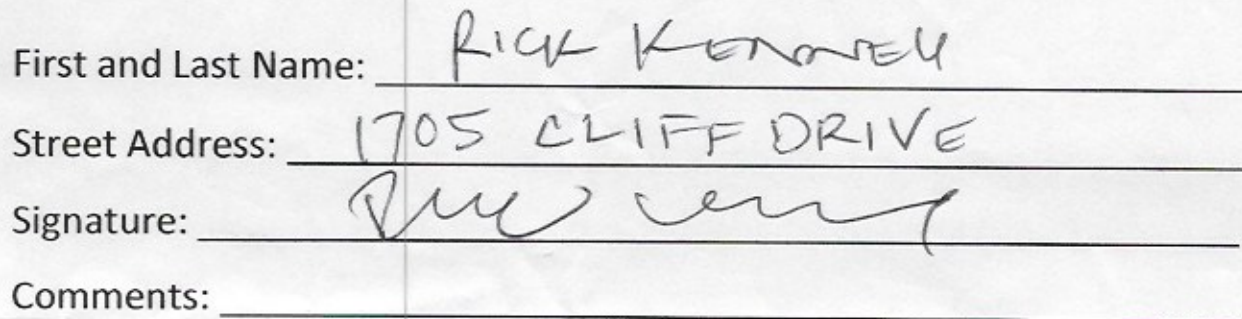 First and Last Name: RICK KENNELL
Street Address: 1705 CLIFF DRIVE
Signature:
Comments: